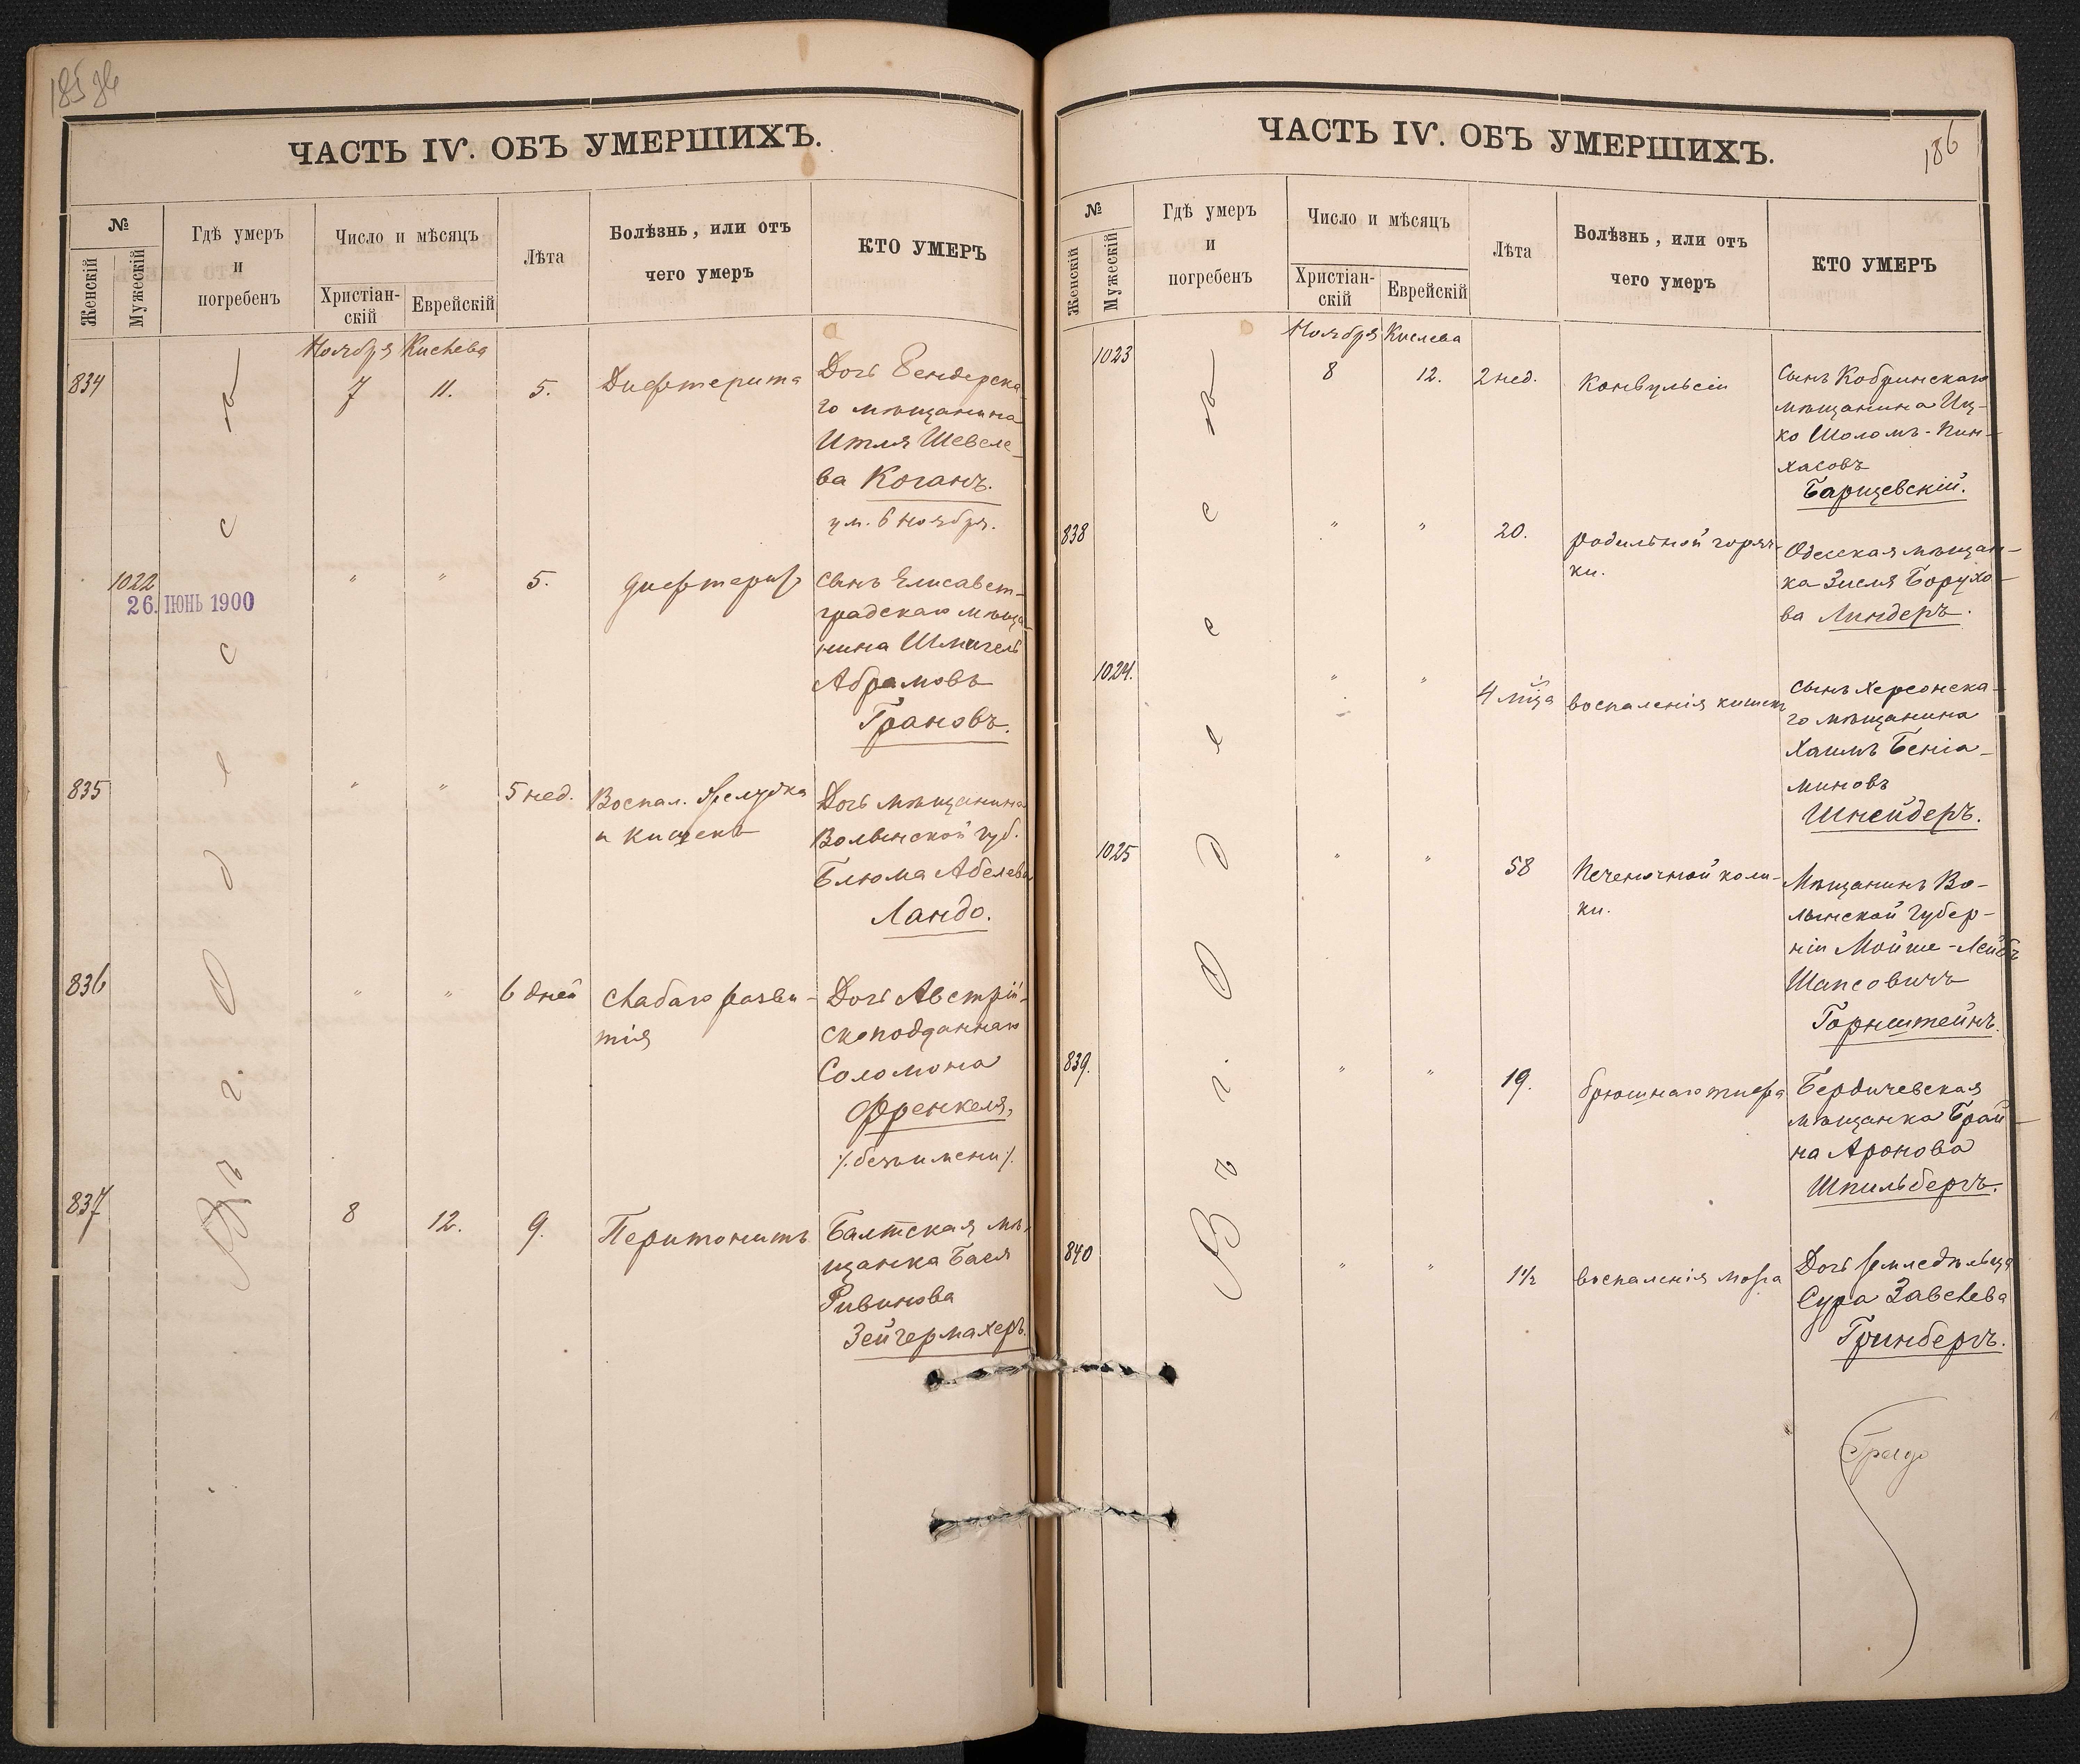 ЧАСТЬ IV. ОБЪ УМЕРШИХЪ.
№
Женскій
Мужескій
Гдѣ умеръ
и
погребенъ
Число и мѣсяцъ
Христіан-
скій
Еврейскій
Лѣта
Болѣзнь, или отъ
чего умеръ
КТО УМЕРЪ
Ноября Кислева
В ъ г. О д е с с ѣ
834
7
11.
5.
Дифтерита
Дочь Бендерска-
го мѣщанина
Итля Шевеле-
ва Коганъ.
ум. 6 ноября.
1022
26. ІЮНЬ 1900
"
"
5.
дифтериф
Сынъ Елисавет-
градскаго мѣща-
нина Шмигель
Абрамовъ
Грановъ.
835
"
"
5 нед.
Воспал. желудка
и кишекъ
Дочь мѣщанина
Волынской губ.
Блюма Абелева
Ландо.
836
"
"
6 дней
слабаго разви-
тія
Дочь Австрій-
скоподданнаго
Соломона
Френкеля,
/. безъ имени /.
837
8
12.
9.
Перитонитъ
Балтская мѣ-
щанка Бася
Ривинова
Зейгермахеръ.
ЧАСТЬ IV. ОБЪ УМЕРШИХЪ.
186
№
Женскій
Мужескій
Гдѣ умеръ
и
погребенъ
Число и мѣсяцъ
Христіан-
скій
Еврейскій
Лѣта
Болѣзнь, или отъ
чего умеръ
КТО УМЕРЪ
Ноября Кислева
В ъ г. О д е с с ѣ
1023
8
12.
2 нед.
Конвульсіи
Сынъ Кобринскаго
мѣщанина Иц-
ко Шоломъ-Пин-
хасовъ
Барщевскій.
838
"
"
20.
родильной горяч-
ки.
Одесская мѣщан-
ка Зисля Борухо-
ва Линдеръ.
1024.
"
"
4 м-ца
воспаленія кишекъ
Сынъ Херсонска-
го мѣщанина
Хаимъ Беніа-
миновъ
Шнейдеръ.
1025
"
"
58
Печеночной коли-
ки.
Мѣщанинъ Во-
лынской губер-
ніи Мойше-Лейбъ
Шапсовичъ
Горнштейнъ.
839.
"
"
19.
брюшнаго тифа
Бердичевская
мѣщанка Брай-
на Аронова
Шпильбергъ.
840
"
"
1½
воспаленія мозга
Дочь земледѣльца
Сура Завелева
Гринбергъ.